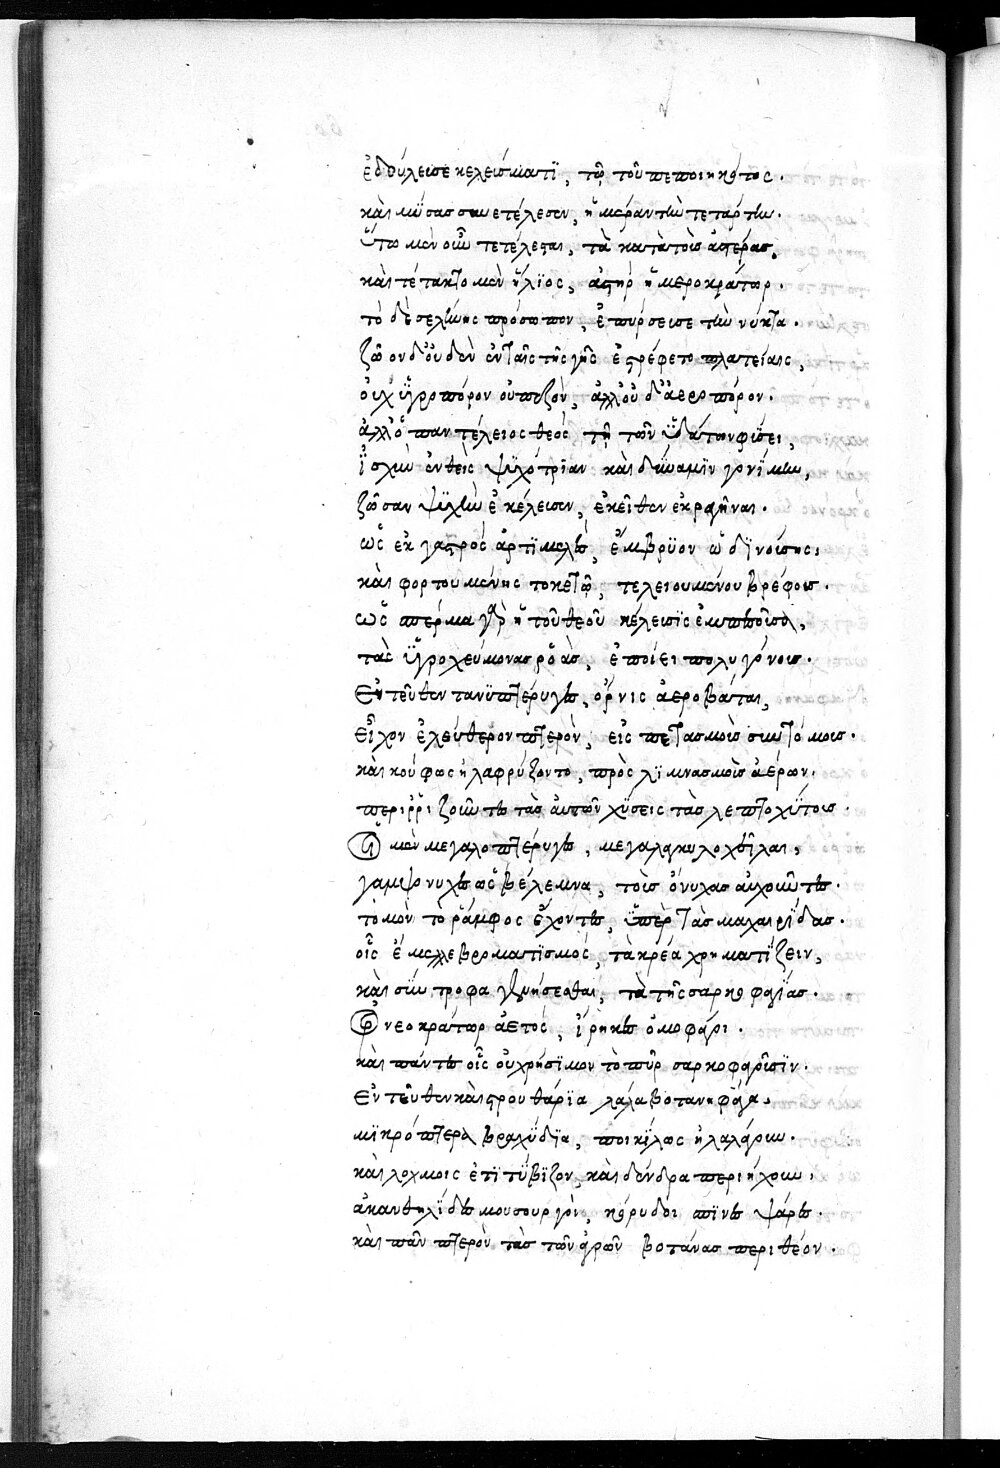 ἐδούλευσε κελεύσματι, τῷ τοῦ πεποιηκότος.
καὶ μύσας συνετέλεσεν, ἡμέραν τὴν τετάρτην.
Οὕτω μὲν οὖν τετέλεσται, τὰ κατὰ τοὺς ἀστέρας,
καὶ τέτακτο μὲν ἥλιος, ἀστὴρ ἡμεροκράτωρ.
τὸ δὲ σελήνης πρόσωπον, ἐπύρσευσε τὴν νύκτα.
ζῶον δ' οὐδὲν ἐν ταῖς τῆς γῆς ἐστρέφετο πλατείαις,
οὐχ ὑγροπόρον οὐ πεζὸν, ἀλλ' οὐδ' ἀεροπόρον.
ἀλλ' ὁ παντέλειος θεὸς τῇ τῶν ὑδάτων φύσει,
ἰσχὺν ἐνθεὶς ψυχότριαν καὶ δύναμιν γονίμην,
ζῶσαν ψυχὴν ἐκέλευσεν, ἐκεῖθεν ἐκραγῆναι.
ὡς ἐκ γαστρὸς ἀρτιμελὲς, ἔμβρυον ὠδινούσης,
καὶ φορτουμένης τοκετῷ, τελειουμένου βρέφους.
ὡς σπέρμα γὰρ ἡ τοῦ θεοῦ κέλευσις ἐμπεσοῦσα,
τὰς ὑγροχεύμονας ῥοὰς, ἐποίει πολυγόνους.
Ἐντεῦθεν τανυπτέρυγες, ὄρνις ἀεροβάται,
εἶχον ἐλεύθερον πτερὸν, εἰς πετασμοὺς συντόμους.
καὶ κούφως ἠλαφρύζοντο, πρὸς λιμνασμοὺς ἀέρων.
περιῤῥιζοῦντες τὰς αὐτῶν χύσεις τὰς λεπτοχύτους.
Οἱ μὲν μεγαλοπτέρυγες, μεγαλαγκυλοχεῖλαι,
γαμψώνυχες ὡς βέλεμνα, τοὺς ὄνυχας αὐχοῦντες.
τομὸν τὸ ῥάμφος ἔχοντες, ὑπὲρ τὰς μαχαιρίδας.
οἷς ἔμελλε βρωματισμὸς, τὰ κρέα χρηματίζειν,
καὶ σύντροφα γενήσεσθαι, τὰ τῆς σαρκοφαγίας.
Ὀρνεοκράτωρ ἀετὸς, ἱέρακες ὁμοφάγοι.
καὶ πάντες οἷς οὐ χρήσιμον τὸ πῦρ σαρκοφαγοῦσιν.
Ἐντεῦθεν καὶ στρουθάρια λάλα βοτανηφάγα,
μικρόπτερα βραχύδια, ποικίλως ἠλαλάγουν.
καὶ λόχμοις ἐτιτύβιζον, καὶ δένδρα περιήχουν,
ἀκανθηλίδες μουσουργὸν, κόρυδοι σπῖνες ψάρες.
καὶ πᾶν πτερὸν τὰς τῶν ἀγρῶν βοτάνας περιθέον.